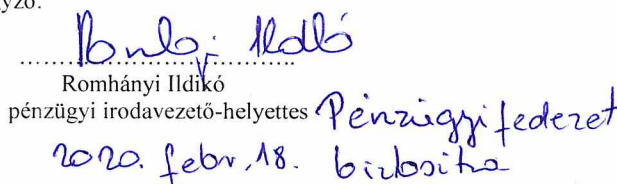 yző:
Romhányi Ildikó
pénzügyi irodavezető-helyettes Pénzügyi fedezet
2020. febr. 18. biztosítva